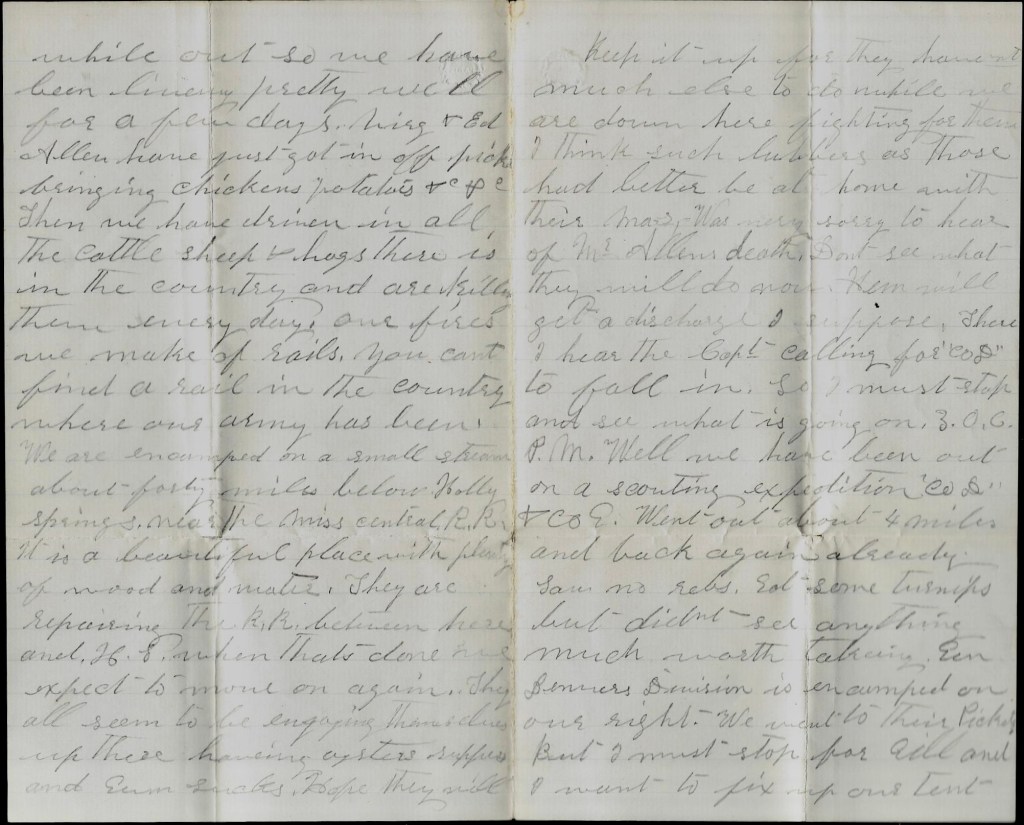 while out so we have
been living pretty well
for a few days. Virg & Ed
Allen have just got in off pick
bringing chickens potatoes &c &c
Then we have driven in all
the cattle sheep & hogs there is
in the country and are killing
them every day. our fires
we make of rails. You cant
find a rail in the country
where our army has been.
We are encamped on a small stream
about forty miles below Holly
springs. near the Miss central R.R.
It is a beautiful place with plenty
of wood and water. They are
repairing the R.R. between here
and H. S. when thats done we
expect to move on again. They
all seem to be engoying themselves
up there having oysters suppers
and Eum sucks. Hope they will
Keep it up for they havent
much else to do while we
are down here fighting for them
I think such lubbers as those
had better be at home with
their Mas. Was very sorry to hear
of Mr Allens death. Dont see what
they will do now. Hem will
get a discharge I suppose. There
I hear the Capt calling for "Co D"
to fall in. So I must stop
and see what is going on. 3. O.C.
P.M. Well we have been out
on a scouting expedition "Co D"
& Co E. Went out about 4 miles
and back again already.
Saw no rebs. Got some turnips
but didnt see anything
much worth takeing. Gen
Denvers Division is encamped on
our right. We went to their Pickets
But I must stop for Edd and
I want to fix up our tent